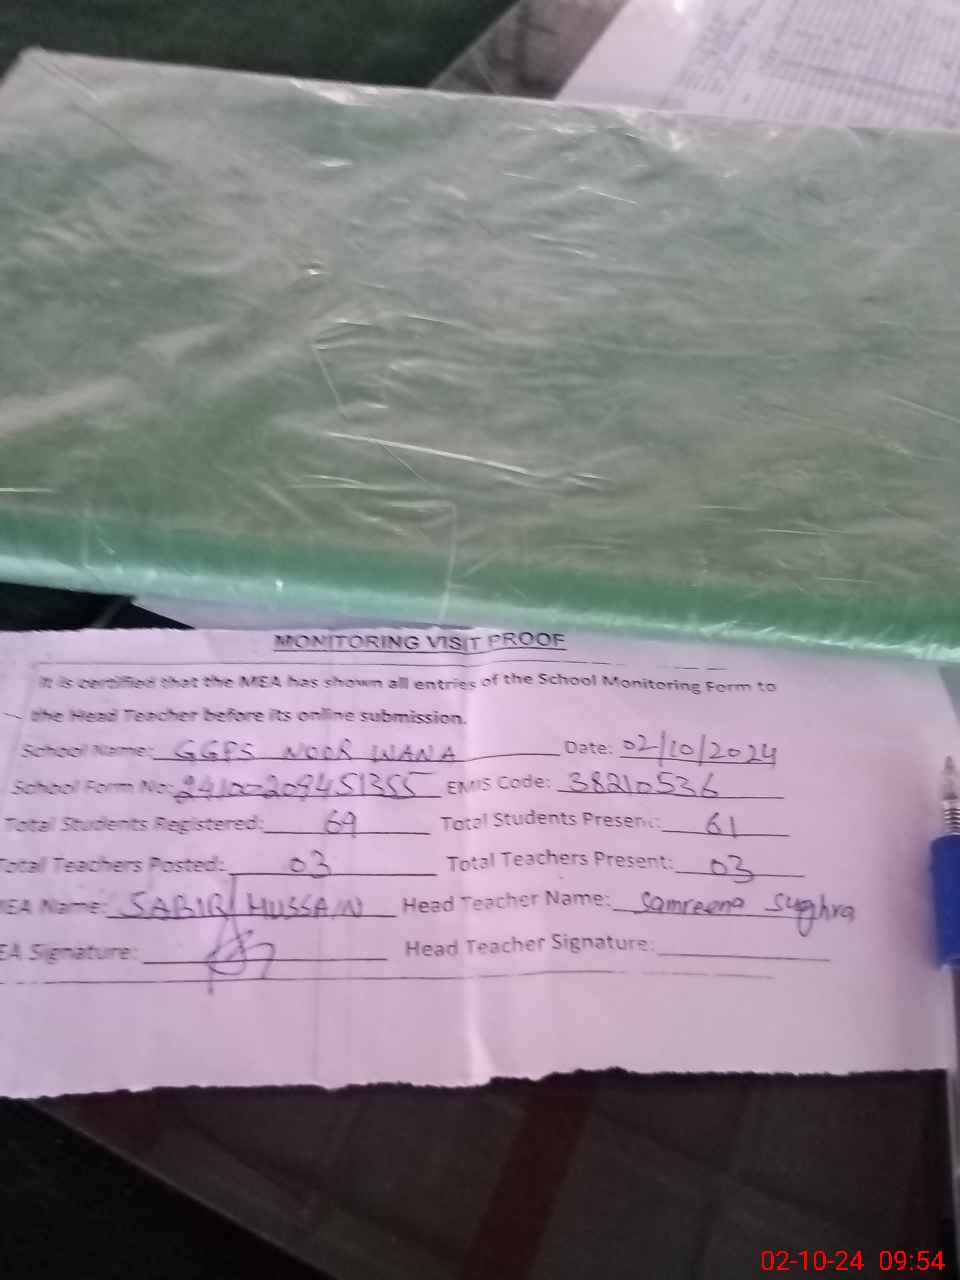 MONITORING VISIT PROOF
It is certified that the MEA has shown all entries of the School Monitoring Form to
the Head Teacher before its online submission.
School Name: GGPS NOOR WANA Date: 02/10/2024
School Form No: 24100209451355 EMIS Code: 38210536
Total Students Registered: 69 Total Students Present: 61
Total Teachers Posted: 03 Total Teachers Present: 03
MEA Name: SABIR HUSSAIN Head Teacher Name: Samreena Sughra
EA Signature: Head Teacher Signature:
02-10-24 09:54